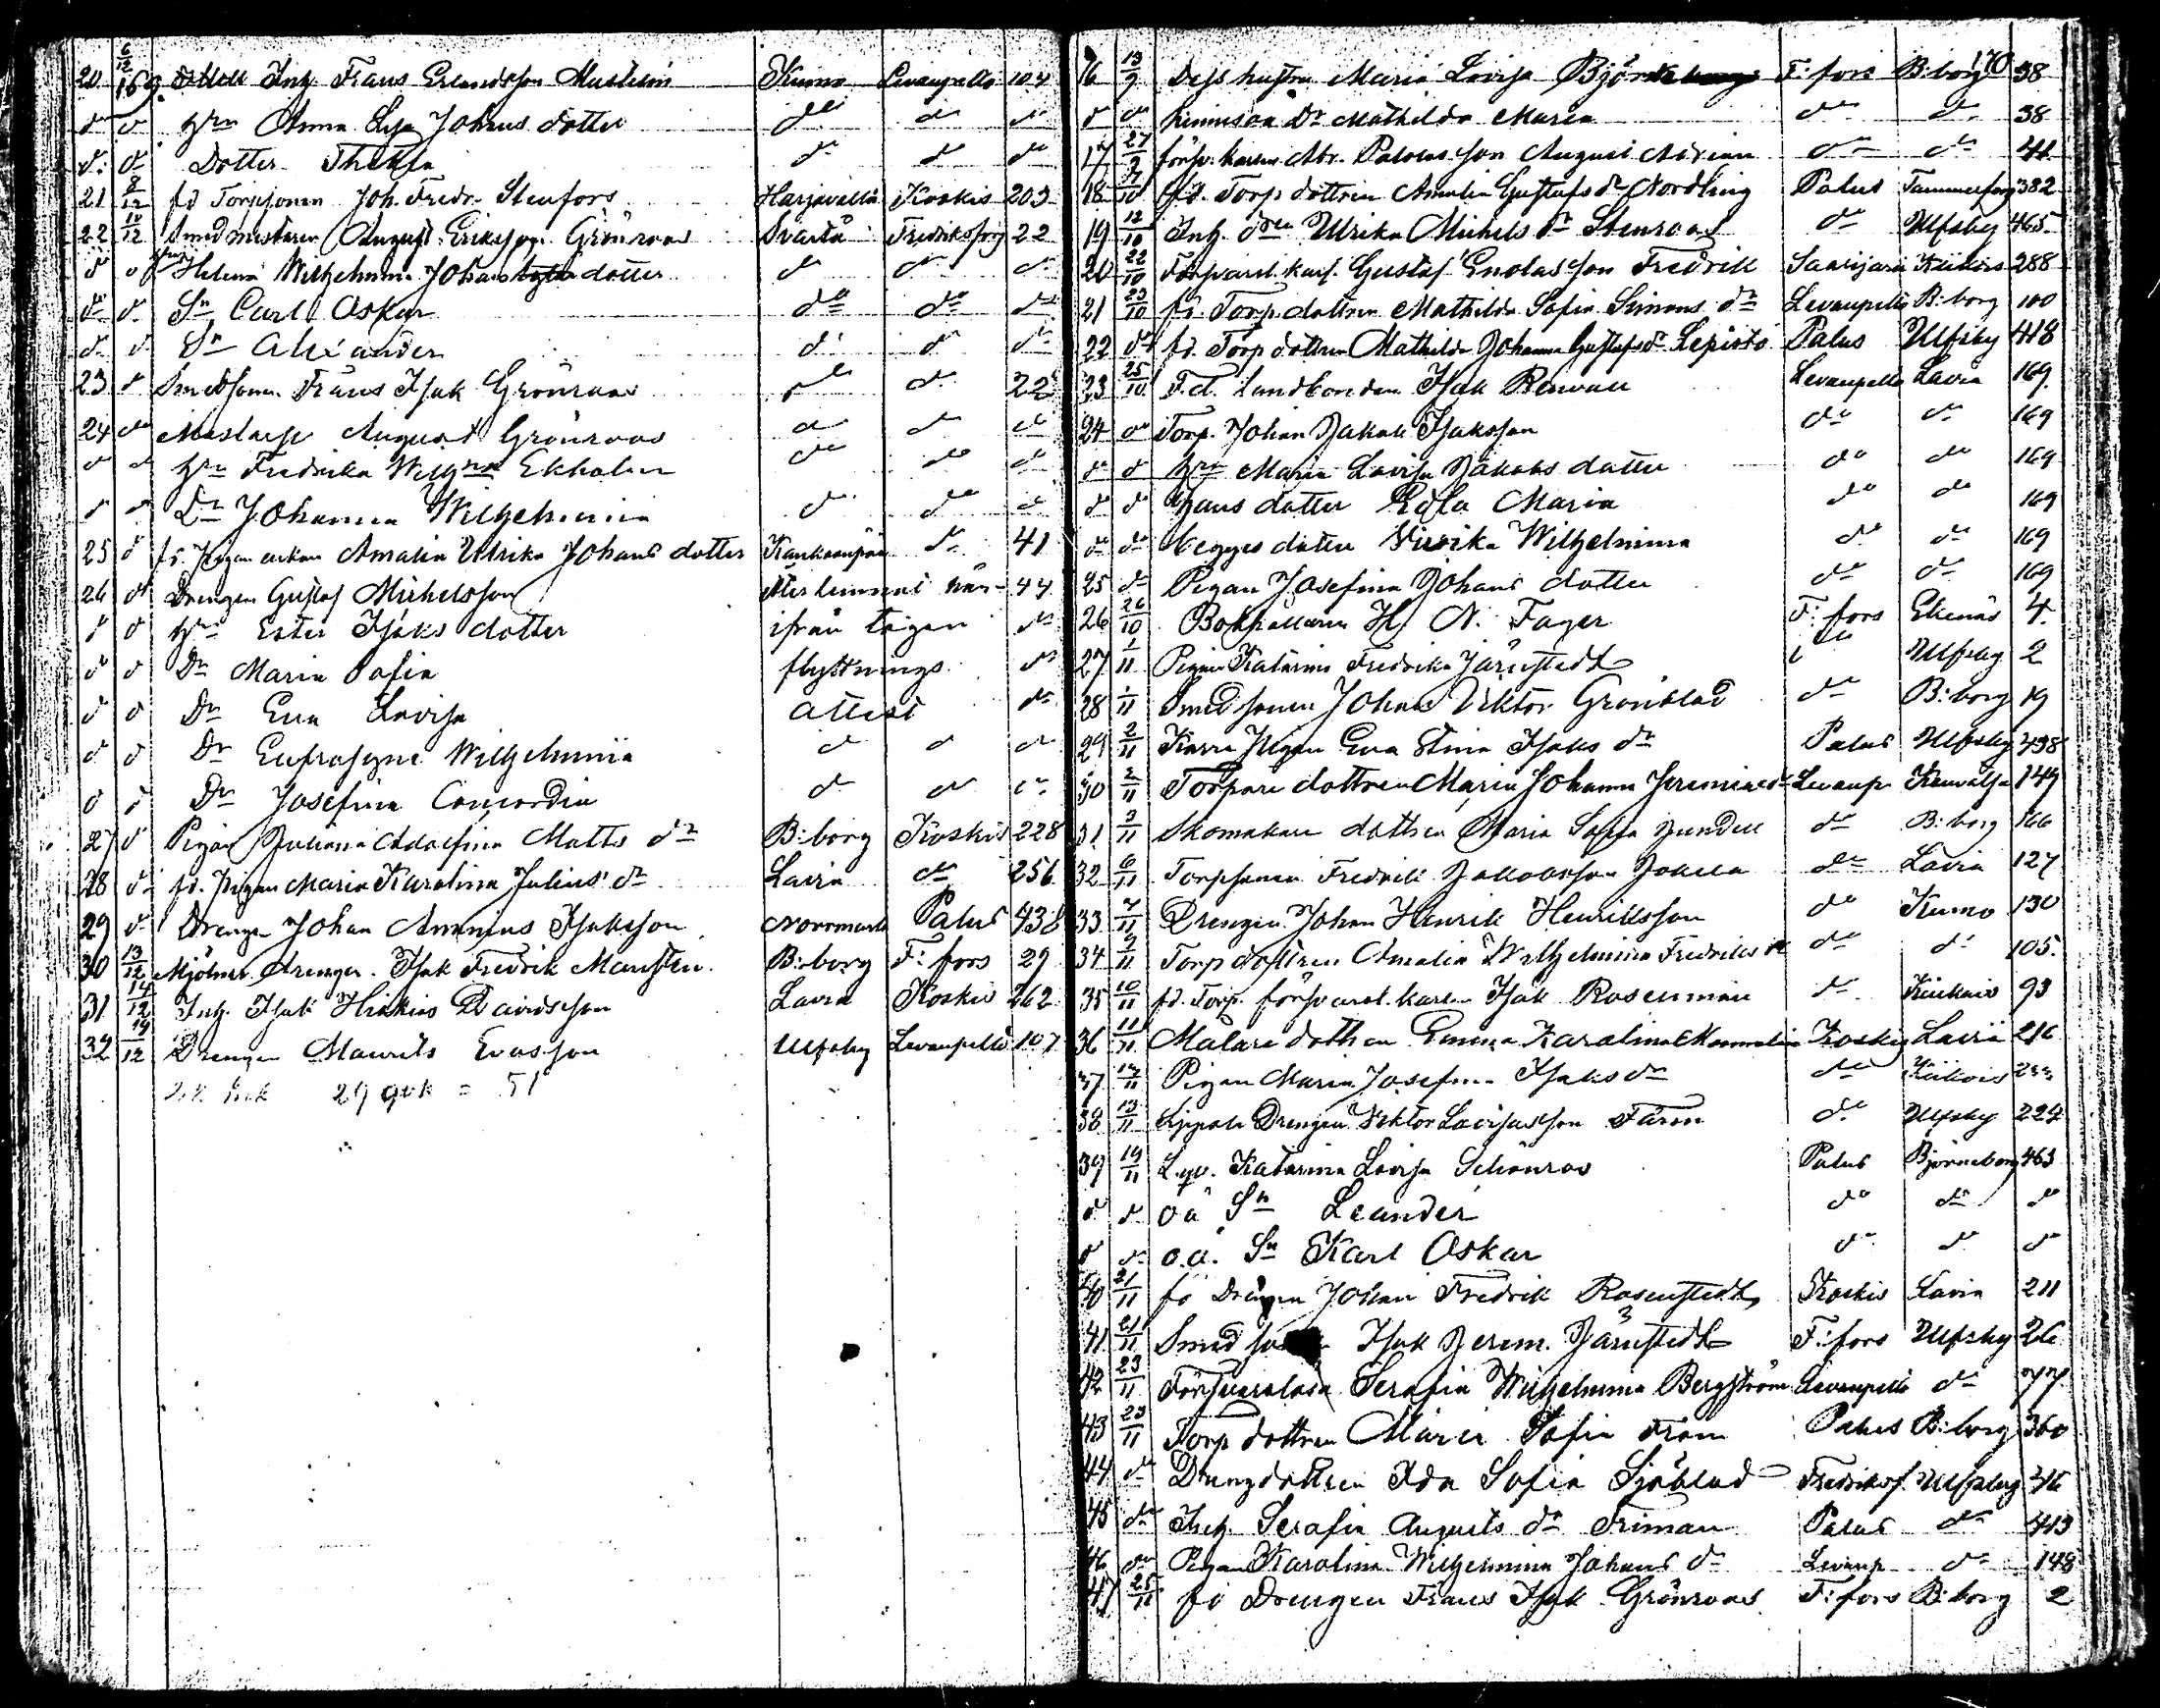 20 6/12 169. Inh. Frans Erlandsson Kumo Levanpelto 104
d:o d:o H:n Anna Lisa Johans dotter d:o d:o d:o
d:o d:o Dotter Thekla d:o d:o d:o
21 8/12 fd Torpsonen Joh. Fredr. Stenfors Harjavalla Koskis 203
22 10/12 Smedmästaren August Eriksson Grönroos Svartå Fredriksforg 22
d:o d:o Helena Wilhelmina Johans dotter d:o d:o d:o
d:o d:o S:n Carl Oskar d:o d:o d:o
d:o d:o S:n Alexander d:o d:o d:o
23 d:o Smedsonen Frans Isak Grönroos d:o d:o 22
24 d:o August Grönroos d:o d:o d:o
d:o d:o H:n Fredrika Wilh:na Ekholm d:o d:o d:o
d:o d:o D:r Johanna Wilhelmina d:o d:o d:o
25 d:o fd. Pigan enkan Amalia Ulrika Johans dotter Kankaanpää d:o 41
26 d:o Drengen Gustaf Michelsson Återlemnat här 44
d:o d:o H:n Ester Isaks dotter ifrån tagen d:o
d:o d:o D:r Maria Sofia flyttnings d:o
d:o d:o D:r Eva Lovisa attest d:o
d:o d:o D:r Eufrosyne Wilhelmina d:o d:o d:o
d:o d:o D:r Josefina Concordia d:o d:o d:o
27 d:o Pigan Juliana Adolfina Matts d:r B:borg Koskis 228
28 d:o fd. Pigan Maria Karolina Julius d:r Lavia d:o 256
29 d:o Drengen Johan Ananias Isaksson Norrmark Palus 438
30 13/12 Mjölnar drengen Isak Fredrik Marsten B:borg F:fors 29
31 14/12 Inh. Isak Hiskias Davidsson Lavia Koskis 262
32 19/12 Drengen Maurits Evasson Ulfsby Levanpelto 107
22 mk 29 qvk = 51
170
16 13/9 Dess hustru Maria Lovisa F:fors B:borg 38
d:o d:o hennes oä D:r Mathilda Maria d:o d:o 38
17 27/9 försv. karlen Abr. August Adrian d:o d:o 41
18 7/10 fd. Torp dottren Amalia Gustafs d:r Nordling Palus Tammerfors 382
19 12/10 Inh. d:ren Ulrika Michels d:r Stenroos d:o Ulfsby 465
20 22/10 Försvarsl. karl. Gustaf Enolasson Fredrik Saarijärvi Kiikois 288
21 23/10 fd. Torp. dottren Mathilda Sofia Simons d:r Levanpelto B:borg 100
22 d:o fd. Torp dottren Mathilda Johanna Gustafs d:r Lepistö Palus Ulfsby 418
23 25/10 F.d. Landbonden Isak Levanpelto Lavia 169
24 d:o Torp. Johan Jakob Isaksson d:o d:o 169
d:o d:o H:n Maria Lovisa Jakobs dotter d:o d:o 169
d:o d:o Hans dotter Edla Maria d:o d:o 169
d:o d:o begges dotter Wilhelmina d:o d:o 169
25 d:o Pigan Josefina Johans dotter d:o d:o 169
26 26/10 Bokhållaren H. N. Fager F:fors Ekenäs 4
27 1/11 Pigan Katarina Fredrika Järnstedt d:o Ulfsby 2
28 1/11 Smedsonen Johan Viktor Grönblad d:o B:borg 19
29 2/11 Pigan Eva Stina Isaks d:r Palus Ulfsby 438
30 2/11 Torpare dottren Maria Johanna Jeremias d:r Levanp. 149
31 3/11 Skomakare dottren Maria Sofia d:o B:borg 166
32 6/11 Torpsonen Fredrik Jakobsson d:o Lavia 127
33 7/11 Drengen Johan Henrik Henriksson d:o Kumo 130
34 9/11 Torp dottren Amalia Wilhelmina Fredriks d:r d:o d:o 105
35 10/11 fd. Torp. försvarsl. karlen Isak Rosenman d:o Kiikois 93
36 11/11 Målare dottren Emma Karolina Koskis Lavia 216
37 12/11 Pigan Maria Josefina Isaks d:r d:o Kiikois
38 13/11 Drengen Viktor Lovisasson d:o Ulfsby 224
39 19/11 L.qv. Katarina Lovisa Schönroos Palus Björneborg 463
d:o d:o oä S:n Leander d:o d:o d:o
d:o d:o o.ä. S:n Karl Oskar d:o d:o d:o
40 21/11 fd Drengen Johan Fredrik Rosenstedt Koskis Lavia 211
41 21/11 Smed Isak Jerem. Järnstedt F:fors Ulfsby 26
42 23/11 Försvarslösa Serafia Wilhelmina Bergström Levanpelto d:o 77
43 23/11 Torp dottren Maria Sofia Fröm Palus B:borg 360
44 d:o Drengdottren Ida Sofia Sjöblad Fredriksf. Ulfsby 46
45 d:o Inh. Serafia Augusts d:r Friman Palus d:o 413
46 d:o Pigan Karolina Wilhelmina Johans d:r Levanp. d:o 148
47 25/11 fd Drengen Frans Isak Grönroos F:fors B:borg 2